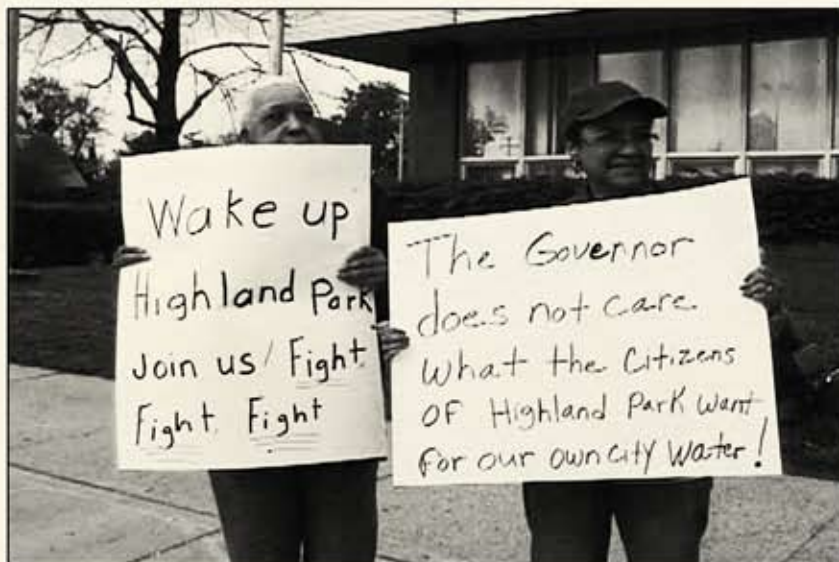 Wake up
Highland Park
Join us! Fight
Fight Fight
The Governor
does not care
what the Citizens
OF Highland Park Want
For our own City Water!